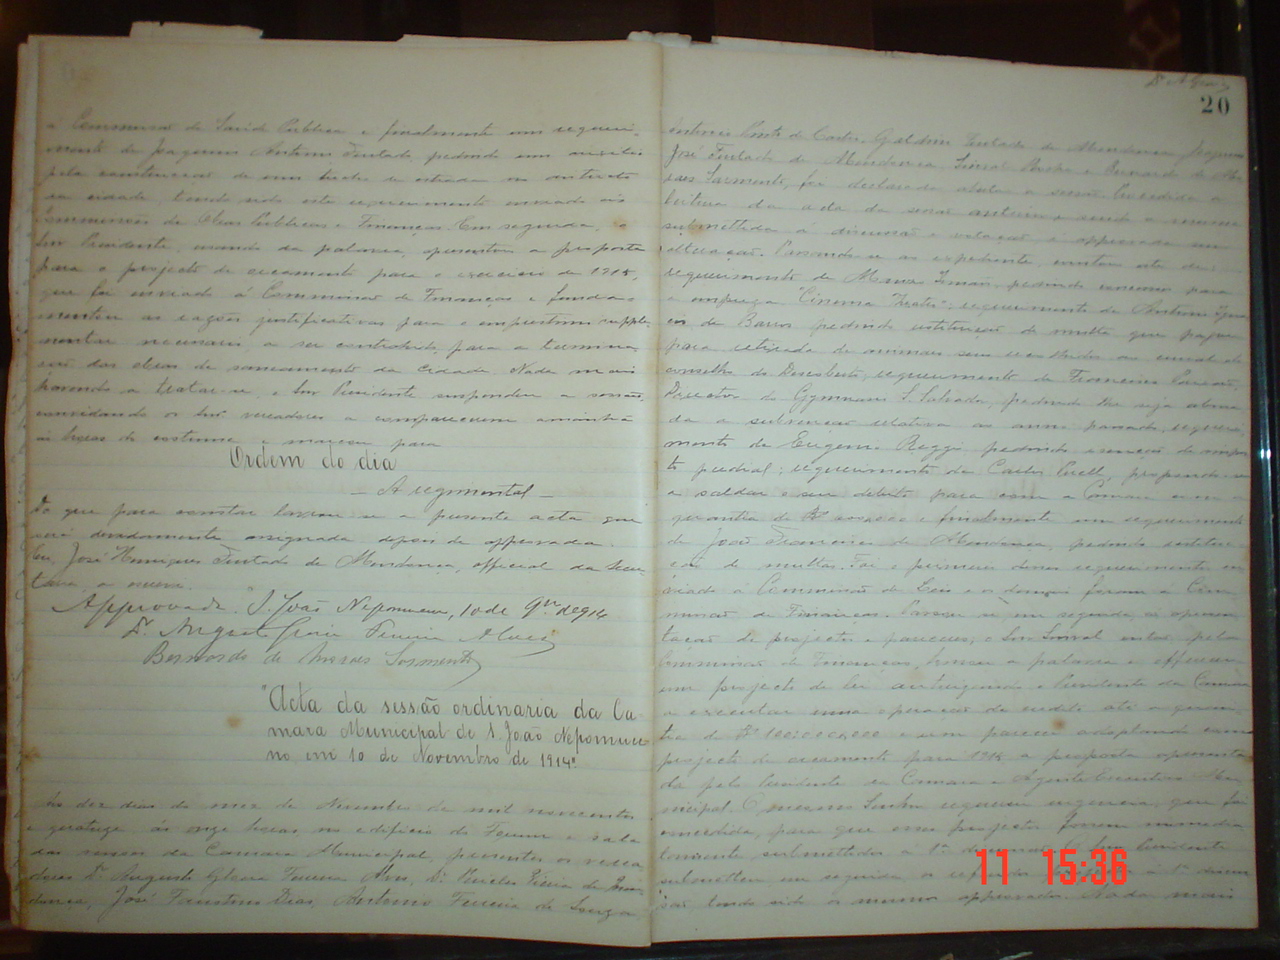 a Commissão de Saúde Publica e finalmente um requeri-
mento de Joaquim Antonio Furtado, pedindo um auxilio
pela construcção de um trecho de estrada no districto
da cidade, tendo sido este requerimento enviado ás
Commissões de Obras Publicas e Finanças. Em seguida, o
Snr Presidente, usando da palavra, apresentou a proposta
para o projecto de orçamento para o exercicio de 1915,
que foi enviado á Commissão de Finanças e funda-
mentou as razões justificativas para o emprestimo supple-
mentar necessario, a ser contrahido, para a termina-
ção das obras de saneamento da cidade. Nada mais
havendo a tratar-se, o Snr Presidente suspendeu a sessão,
convidando os Snrs vereadores a comparecerem amanhã
ás horas do costume e marcou para
Ordem do dia
— A regimental —
Do que para constar lavrou-se a presente acta que
será devidamente assignada depois de approvada.
Eu, José Henriques Furtado de Mendonça, official da Secre-
taria, a escrevi.
Approvada. S. João Nepomuceno, 10 de 9bro de 914
Dr. Augusto Gloria Ferreira Alves
Bernardo de Moraes Sarmento
"Acta da sessão ordinaria da Ca-
mara Municipal de S. João Nepomuce-
no em 10 de Novembro de 1914"
Aos dez dias do mez de Novembro de mil novecentos
e quatorze, ás onze horas, no edificio do Forum e sala
das sessões da Camara Municipal, presentes os verea-
dores Dr. Augusto Gloria Ferreira Alves, Dr. Pericles Vieira de Men-
donça, José Faustino Dias, Antonio Ferreira de Souza
20
Antonio Couto de Castro, Galdino Furtado de Mendonça, Joaquim
José Furtado de Mendonça, Sinval e Bernardo de Mo-
raes Sarmento, foi declarada aberta a sessão. Procedida a
leitura da acta da sessão anterior e sendo a mesma
submettida á discussão e votação, é approvada sem
alteração. Passando-se ao expediente,
requerimento de pedindo para
a empreza "Cinema Theatro"; requerimento de Antonio
de Barros pedindo restituição de multa que pagou
para retirada de animaes seus recolhidos ao curral do
conselho do Descoberto; requerimento de Francisco
Director do Gymnasio S. Salvador, pedindo lhe seja abona-
da a subvenção relativa ao anno passado; requeri-
mento de Eugenio Reggi, pedindo isenção de impos-
to predial; requerimento de Carlos propondo-se
a saldar o seu debito para com a Camara
quantia de e finalmente um requerimento
de João Francisco de Mendonça, pedindo restitui-
ção de multas. Foi o primeiro destes requerimentos en-
viado á Commissão de Leis e os demais foram á Com-
missão de Finanças. Passou-se, em seguida, á apresen-
tação de projectos e pareceres; o Snr Sinval pela
Commissão de Finanças, tomou a palavra e offereceu
um projecto de lei autorizando o Presidente da Camara
a executar uma operação de credito até a quan-
tia de Rs 100:000$000 e um parecer adoptando como
projecto de orçamento para 1915 a proposta apresenta-
da pelo Presidente da Camara e Agente Executivo Mu-
nicipal. O mesmo Senhor requereu urgencia, que foi
concedida, para que esses projectos fossem immedia-
tamente submettidos á 1ª discussão. O Snr Presidente
submetteu em seguida os referidos á 1ª discus-
são tendo sido os mesmos approvados. Nada mais
11 15:36